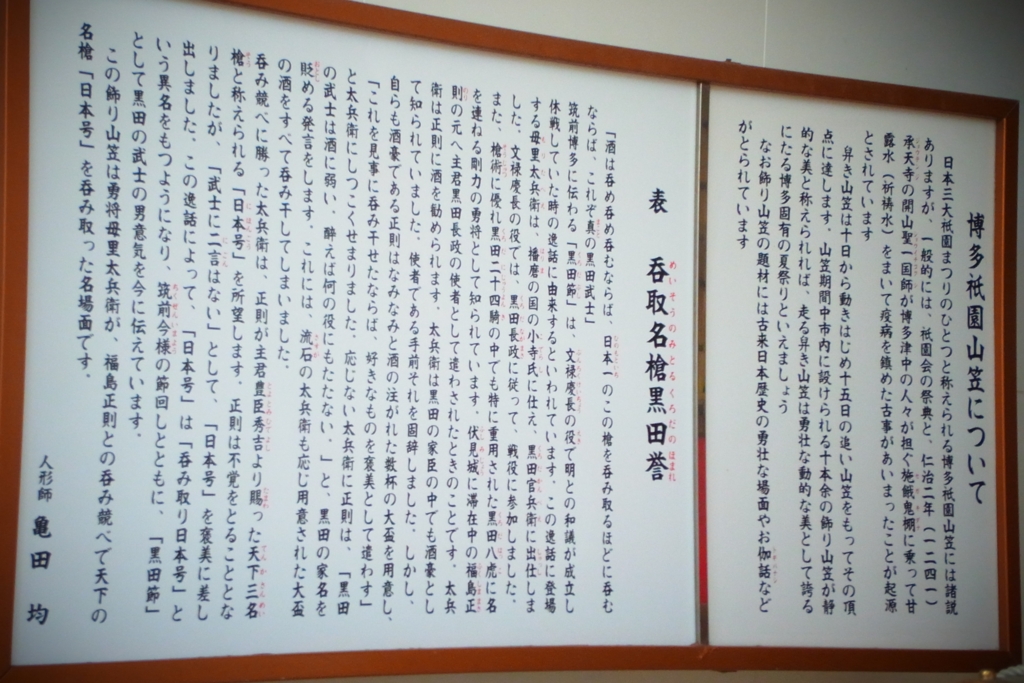 博多祇園山笠について
日本三大祇園まつりのひとつと称えられる博多祇園山笠には諸説
ありますが、一般的には、祇園会の祭典と、仁治二年(一二四一)
承天寺の開山聖一国師が博多津中の人々が担ぐ施餓鬼棚に乗って甘
露水(祈祷水)をまいて疫病を鎮めた古事があいまったことが起源
とされています
舁き山笠は十日から動きはじめ十五日の追い山笠をもってその頂
点に達します。山笠期間中市内に設けられる十本余の飾り山笠が静
的な美と称えられれば、走る舁き山笠は勇壮な動的な美として誇る
にたる博多固有の夏祭りといえましょう
なお飾り山笠の題材には古来日本歴史の勇壮な場面やお伽話など
がとられています
表 呑取名槍黒田誉
「酒は呑め呑め呑むならば、日本一のこの槍を呑み取るほどに呑む
ならば、これぞ真の黒田武士」
筑前博多に伝わる「黒田節」は、文禄慶長の役で明との和議が成立し
休戦していた時の逸話に由来するといわれています。この逸話に登場
する母里太兵衛は、播磨の国の小寺氏に仕え、黒田官兵衛に出仕しま
した。文禄慶長の役では、黒田長政に従って、戦役に参加しました。
また、槍術に優れ黒田二十四騎の中でも特に重用された黒田八虎に名
を連ねる剛力の勇将として知られています。伏見城に滞在中の福島正
則の元へ主君黒田長政の使者として遣わされたときのことです。太兵
衛は正則に酒を勧められます。太兵衛は黒田の家臣の中でも酒豪とし
て知られていました。使者である手前それを固辞しました。しかし、
自らも酒豪である正則はなみなみと酒の注がれた数杯の大盃を用意し、
「これを見事に呑み干せたならば、好きなものを褒美として遣わす」
と太兵衛にしつこくせまりました。応じない太兵衛に正則は、「黒田
の武士は酒に弱い、酔えば何の役にもたたない。」と、黒田の家名を
貶める発言をします。これには、流石の太兵衛も応じ用意された大盃
の酒をすべて呑み干してしまいました。
呑み競べに勝った太兵衛は、正則が主君豊臣秀吉より賜った天下三名
槍と称えられる「日本号」を所望します。正則は不覚をとることとな
りましたが、「武士に二言はない」として、「日本号」を褒美に差し
出しました。この逸話によって、「日本号」は「呑み取り日本号」と
いう異名をもつようになり、筑前今様の節回しとともに、「黒田節」
として黒田の武士の男意気を今に伝えています。
この飾り山笠は勇将母里太兵衛が、福島正則との呑み競べで天下の
名槍「日本号」を呑み取った名場面です。
人形師 亀田 均